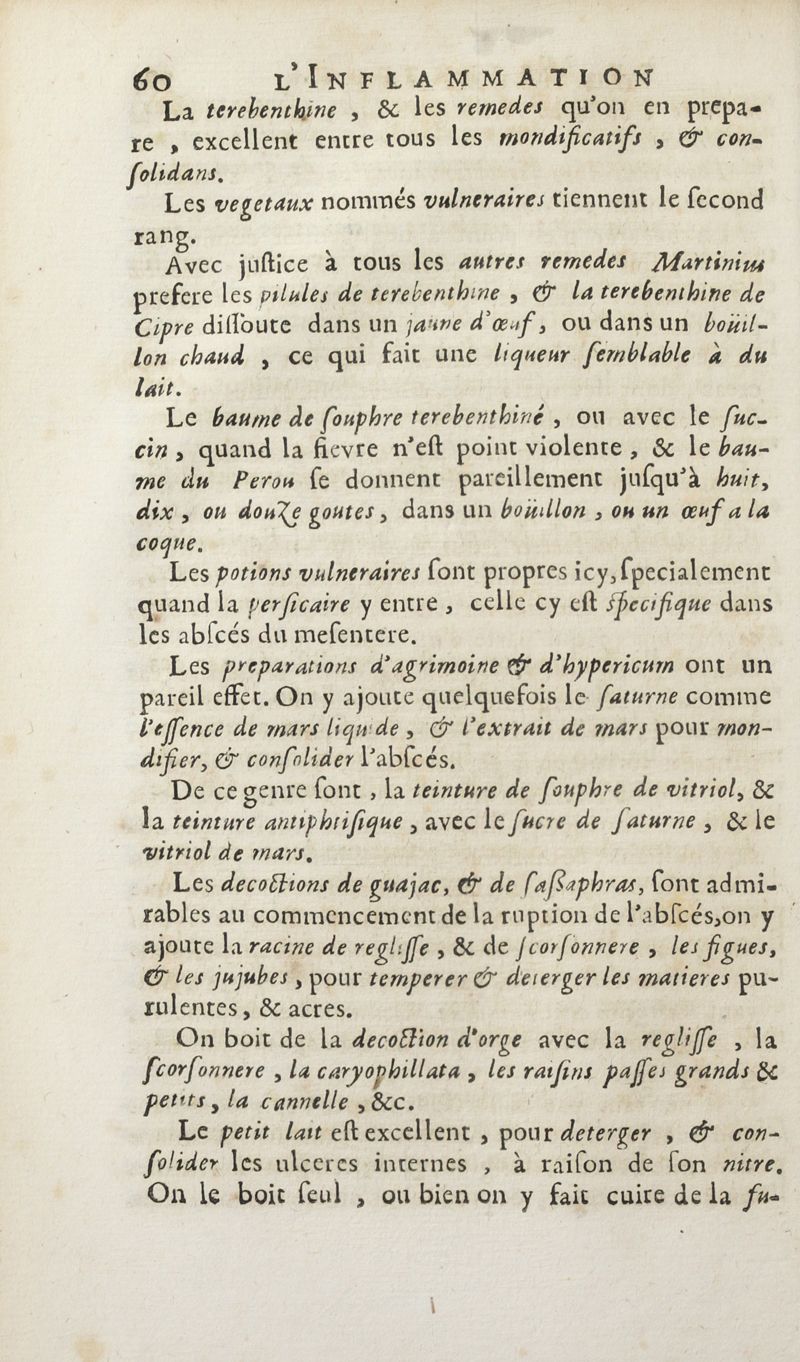 60 L'INFLAMMATION
La terebenthine , & les remedes qu'on en prepa-
re , excellent entre tous les mondificatifs , & con-
ſolidans.
Les vegetaux nommés vulneraires tiennent le ſecond
rang.
Avec juſtice à tous les autres remedes Martinius
prefere les pilules de terebenthine , & la terebenthine de
Cipre diſſoute dans un jaune d'œuf, ou dans un boüil-
lon chaud , ce qui fait une liqueur ſemblable à du
lait.
Le baume de ſouphre terebenthiné , ou avec le ſuc-
cin , quand la fievre n'eſt point violente , & le bau-
me du Perou ſe donnent pareillement juſqu'à huit,
dix , ou douze goutes, dans un boüillon , ou un œuf a la
coque.
Les potions vulneraires ſont propres icy,ſpecialement
quand la perſicaire y entre , celle cy eſt ſpecifique dans
les abſcés du meſentere.
Les preparations d'agrimoine & d'hypericum ont un
pareil effet. On y ajoute quelquefois le ſaturne comme
l'eſſence de mars liquide , & l'extrait de mars pour mon-
difier, & conſolider l'abſcés.
De ce genre ſont , la teinture de ſouphre de vitriol, &
la teinture antiphtiſique , avec le ſucre de ſaturne , & le
vitriol de mars.
Les decoctions de guajac, & de ſaſſaphras, ſont admi-
rables au commencement de la ruption de l'abſcés,on y
ajoute la racine de regliſſe , & de ſcorſonnere , les figues,
& les jujubes , pour temperer & deterger les matieres pu-
rulentes, & acres.
On boit de la decoction d'orge avec la regliſſe , la
ſcorſonnere , la caryophillata , les raiſins paſſes grands &
petits , la cannelle , &c.
Le petit lait eſt excellent , pour deterger , & con-
ſolider les ulceres internes , à raiſon de ſon nitre.
On le boit ſeul , ou bien on y fait cuire de la fu-